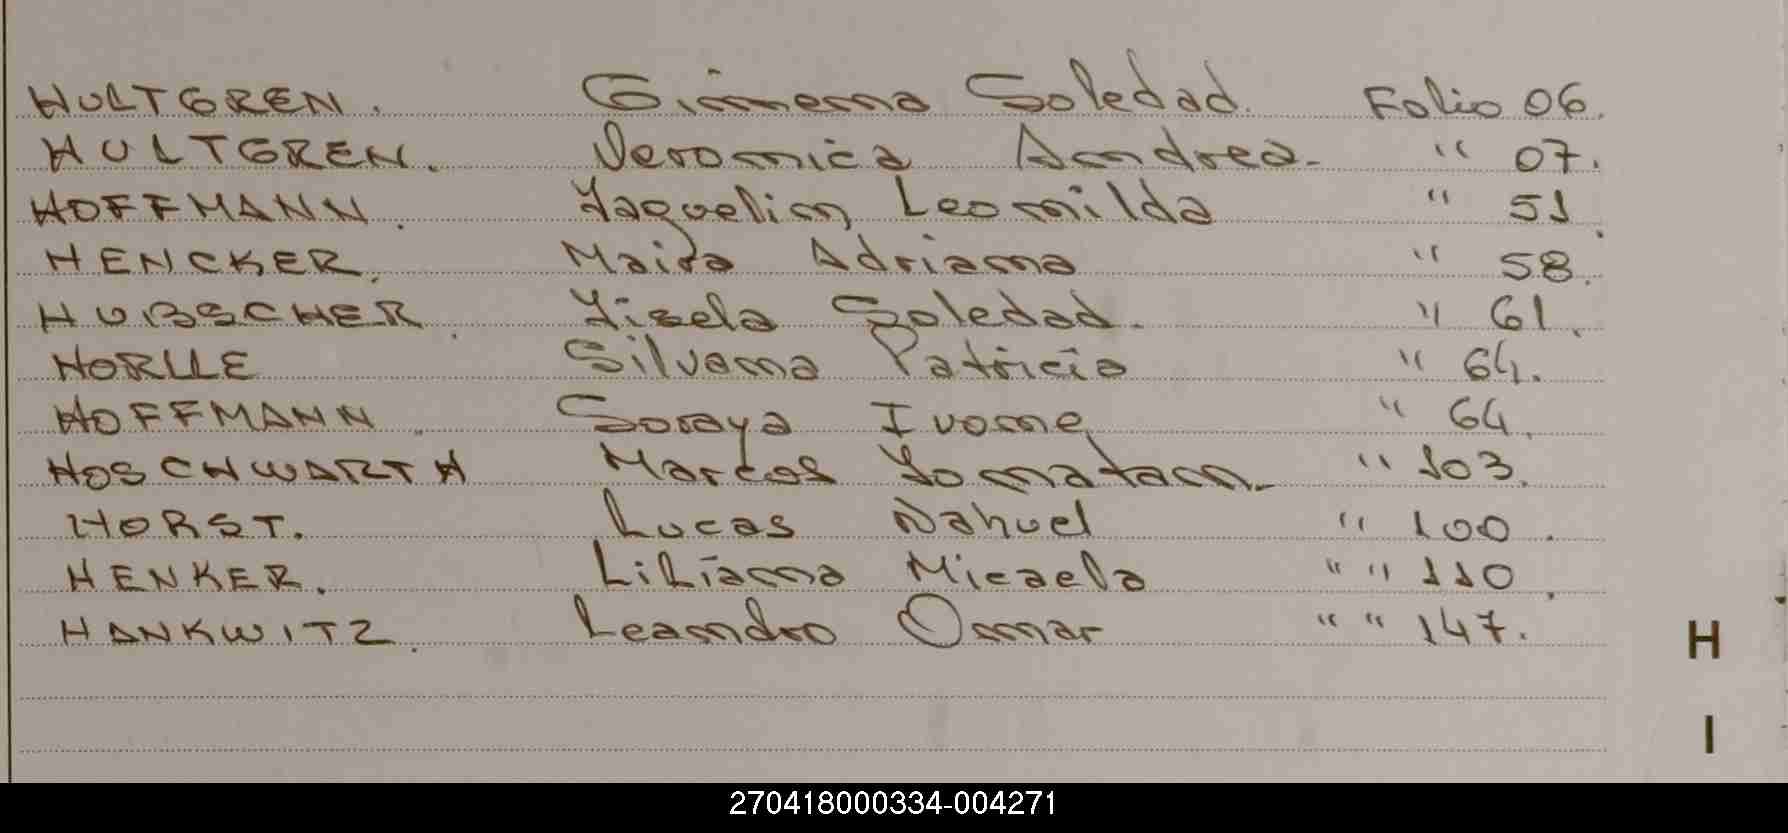 HULTGREN. Gimena Soledad. Folio 06.
HULTGREN. Veronica Andrea. " 07.
HOFFMANN. Yaquelin Leonilda " 51.
HENCKER. Maida Adriana " 58.
HUBSCHER. Yisela Soledad. " 61.
HORLLE Silvana Patricia " 64.
HOFFMANN. Soraya Ivone " 64.
HOSCHWARTH Marcos Yonatan. " 103.
HORST. Lucas Nahuel " 100.
HENKER. Liliana Micaela " " 110.
HANKWITZ. Leandro Omar " " 147.
H
I
270418000334-004271